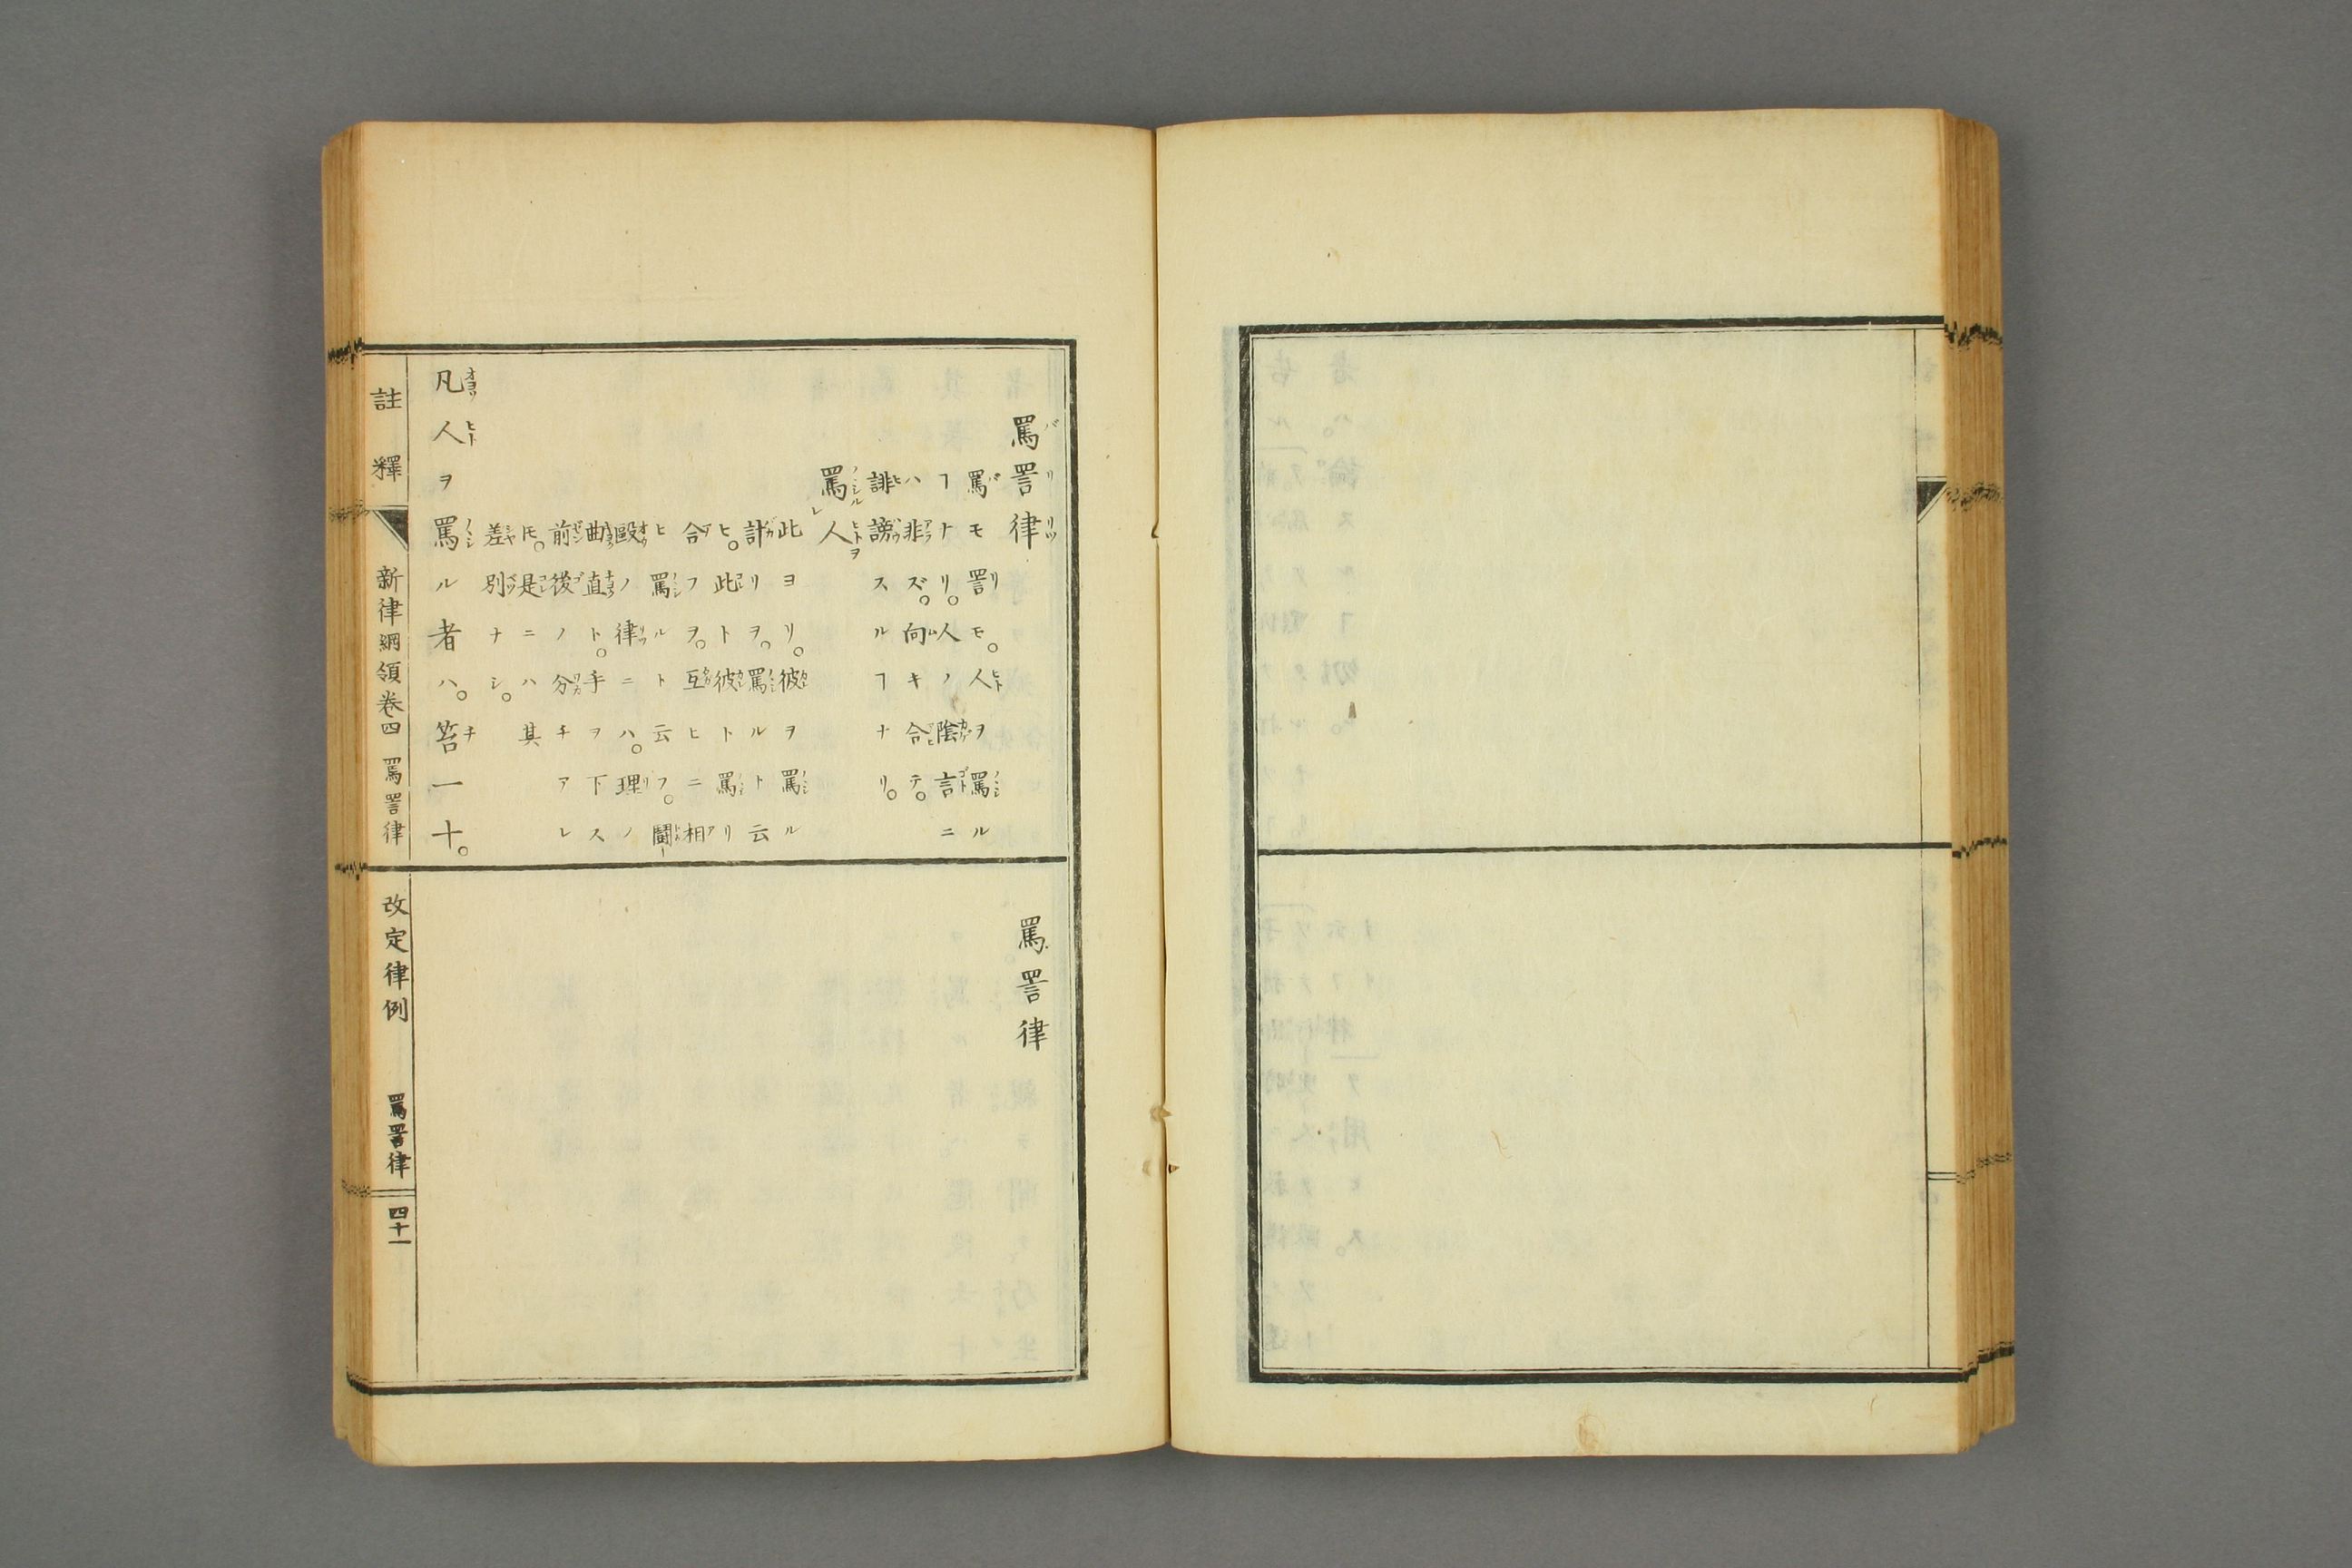 罵詈律
罵モ詈モ。人ヲ罵ル
ヿナリ。人ノ陰言ニ
ハ非ズ。向キ合テ。
誹謗スルヿナリ。
罵レ人
此ヨリ。彼ヲ罵ル
計リヲ。罵ルト云
ヒ。此ト彼ト罵リ
合フヲ。互ヒニ相
ヒ罵ルト云フ。鬪
毆ノ律ニハ。理ノ
曲直ト。手ヲ下ス
前後ノ分チアレ
𪜈。是ニハ其
差別ナシ。
凡人ヲ罵ル者ハ。笞一十。
罵詈律
註釋
新律綱領卷四 罵詈律
改定律例 罵詈律
四十一